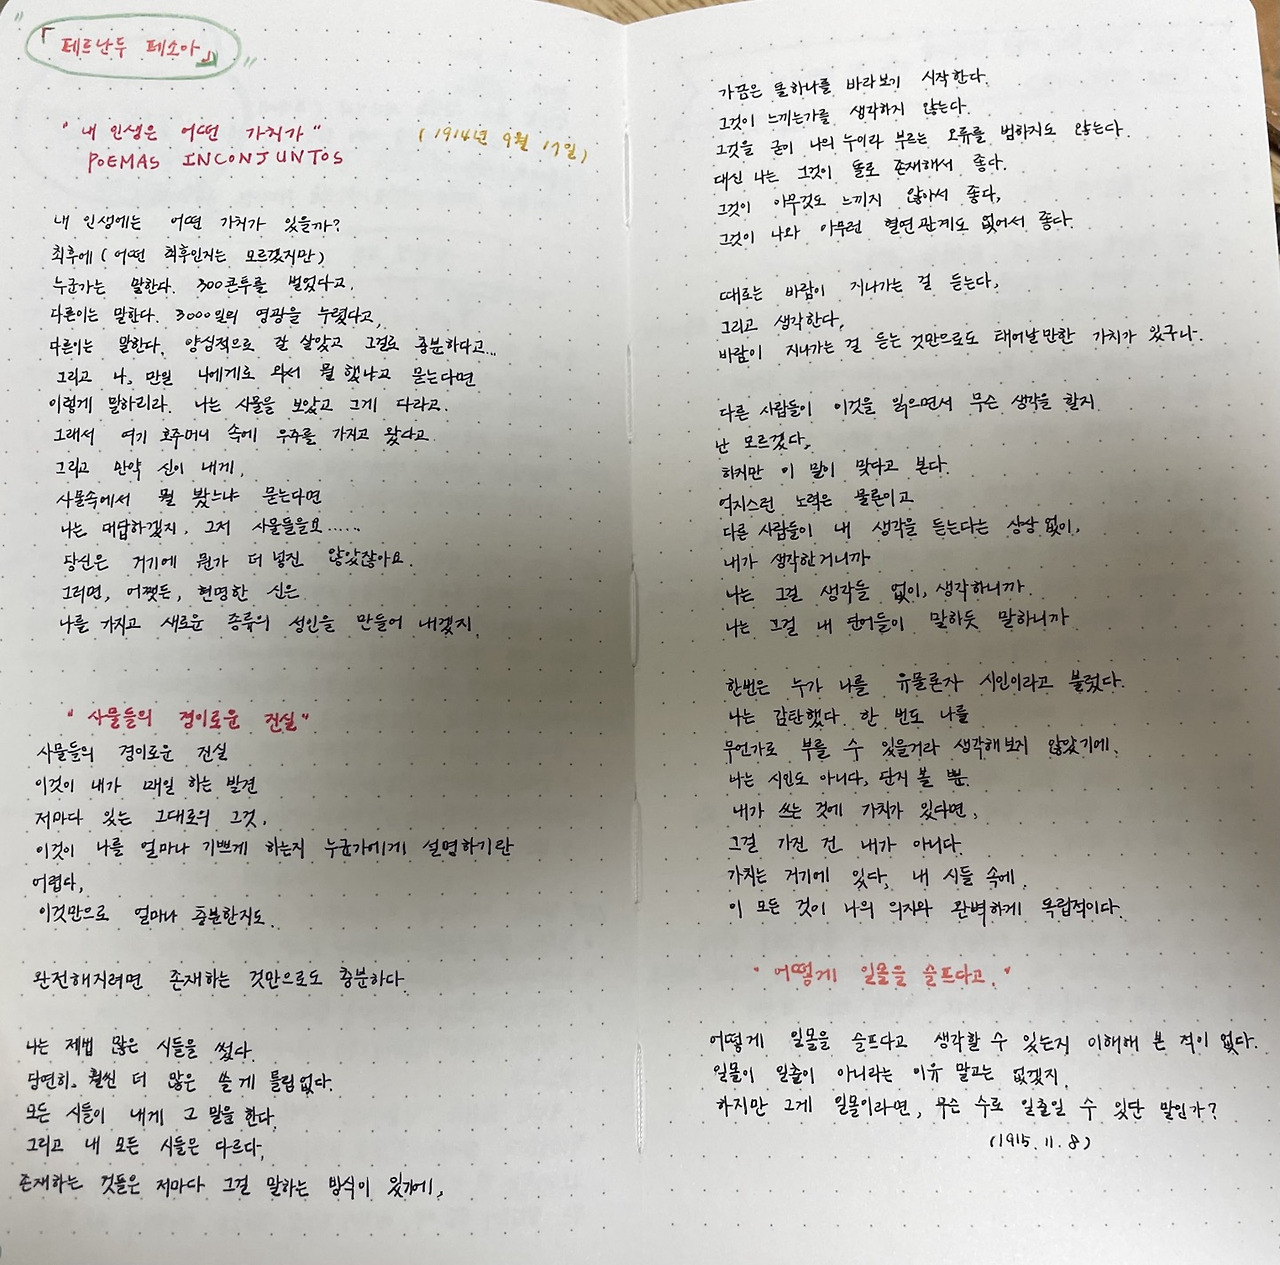 「페르난두 페소아」
"내 인생은 어떤 가치가"
(1914년 9월 17일)
POEMAS INCONJUNTOS
내 인생에는 어떤 가치가 있을까?
최후에 (어떤 최후인지는 모르겠지만)
누군가는 말한다. 300콘투를 벌었다고,
다른이는 말한다. 3000일의 영광을 누렸다고,
다른이는 말한다. 양심적으로 잘 살았고 그걸로 충분하다고...
그리고 나, 만일 나에게로 와서 뭘 했냐고 묻는다면
이렇게 말하리라. 나는 사물을 보았고 그게 다라고.
그래서 여기 호주머니 속에 우주를 가지고 왔다고
그리고 만약 신이 내게,
사물속에서 뭘 봤느냐 묻는다면
나는 대답하겠지, 그저 사물들을요......
당신은 거기에 뭔가 더 넣진 않았잖아요.
그러면, 어쨌든, 현명한 신은
나를 가지고 새로운 종류의 성인을 만들어 내겠지.
"사물들의 경이로운 진실"
사물들의 경이로운 진실
이것이 내가 매일 하는 발견
저마다 있는 그대로의 그것,
이것이 나를 얼마나 기쁘게 하는지 누군가에게 설명하기란
어렵다,
이것만으로 얼마나 충분한지도.
완전해지려면 존재하는 것만으로도 충분하다
나는 제법 많은 시들을 썼다.
당연히, 훨씬 더 많은 쓸 게 틀림없다.
모든 시들이 내게 그 말을 한다,
그리고 내 모든 시들은 다르다,
존재하는 것들은 저마다 그걸 말하는 방식이 있기에,
가끔은 돌하나를 바라보기 시작한다.
그것이 느끼는가를 생각하지 않는다.
그것을 굳이 나의 누이라 부르는 오류를 범하지도 않는다.
대신 나는 그것이 돌로 존재해서 좋다.
그것이 아무것도 느끼지 않아서 좋다,
그것이 나와 아무런 혈연관계도 없어서 좋다.
때로는 바람이 지나가는 걸 듣는다,
그리고 생각한다,
바람이 지나가는 걸 듣는 것만으로도 태어날만한 가치가 있구나.
다른 사람들이 이것을 읽으면서 무슨 생각을 할지
난 모르겠다,
하지만 이 말이 맞다고 본다.
억지스런 노력은 물론이고
다른 사람들이 내 생각을 듣는다는 상상 없이,
내가 생각한거니까
나는 그걸 생각들 없이, 생각하니까
나는 그걸 내 단어들이 말하듯 말하니까
한번은 누가 나를 유물론자 시인이라고 불렀다.
나는 감탄했다. 한 번도 나를
무언가로 부를 수 있을거라 생각해보지 않았기에.
나는 시인도 아니다, 단지 볼 뿐.
내가 쓰는 것에 가치가 있다면,
그걸 가진 건 내가 아니다.
가치는 거기에 있다, 내 시들 속에.
이 모든 것이 나의 의지와 완벽하게 독립적이다.
"어떻게 일몰을 슬프다고"
어떻게 일몰을 슬프다고 생각할 수 있는지 이해해 본 적이 없다.
일몰이 일출이 아니라는 이유 말고는 없겠지.
하지만 그게 일몰이라면, 무슨 수로 일출일 수 있단 말인가?
(1915. 11. 8)